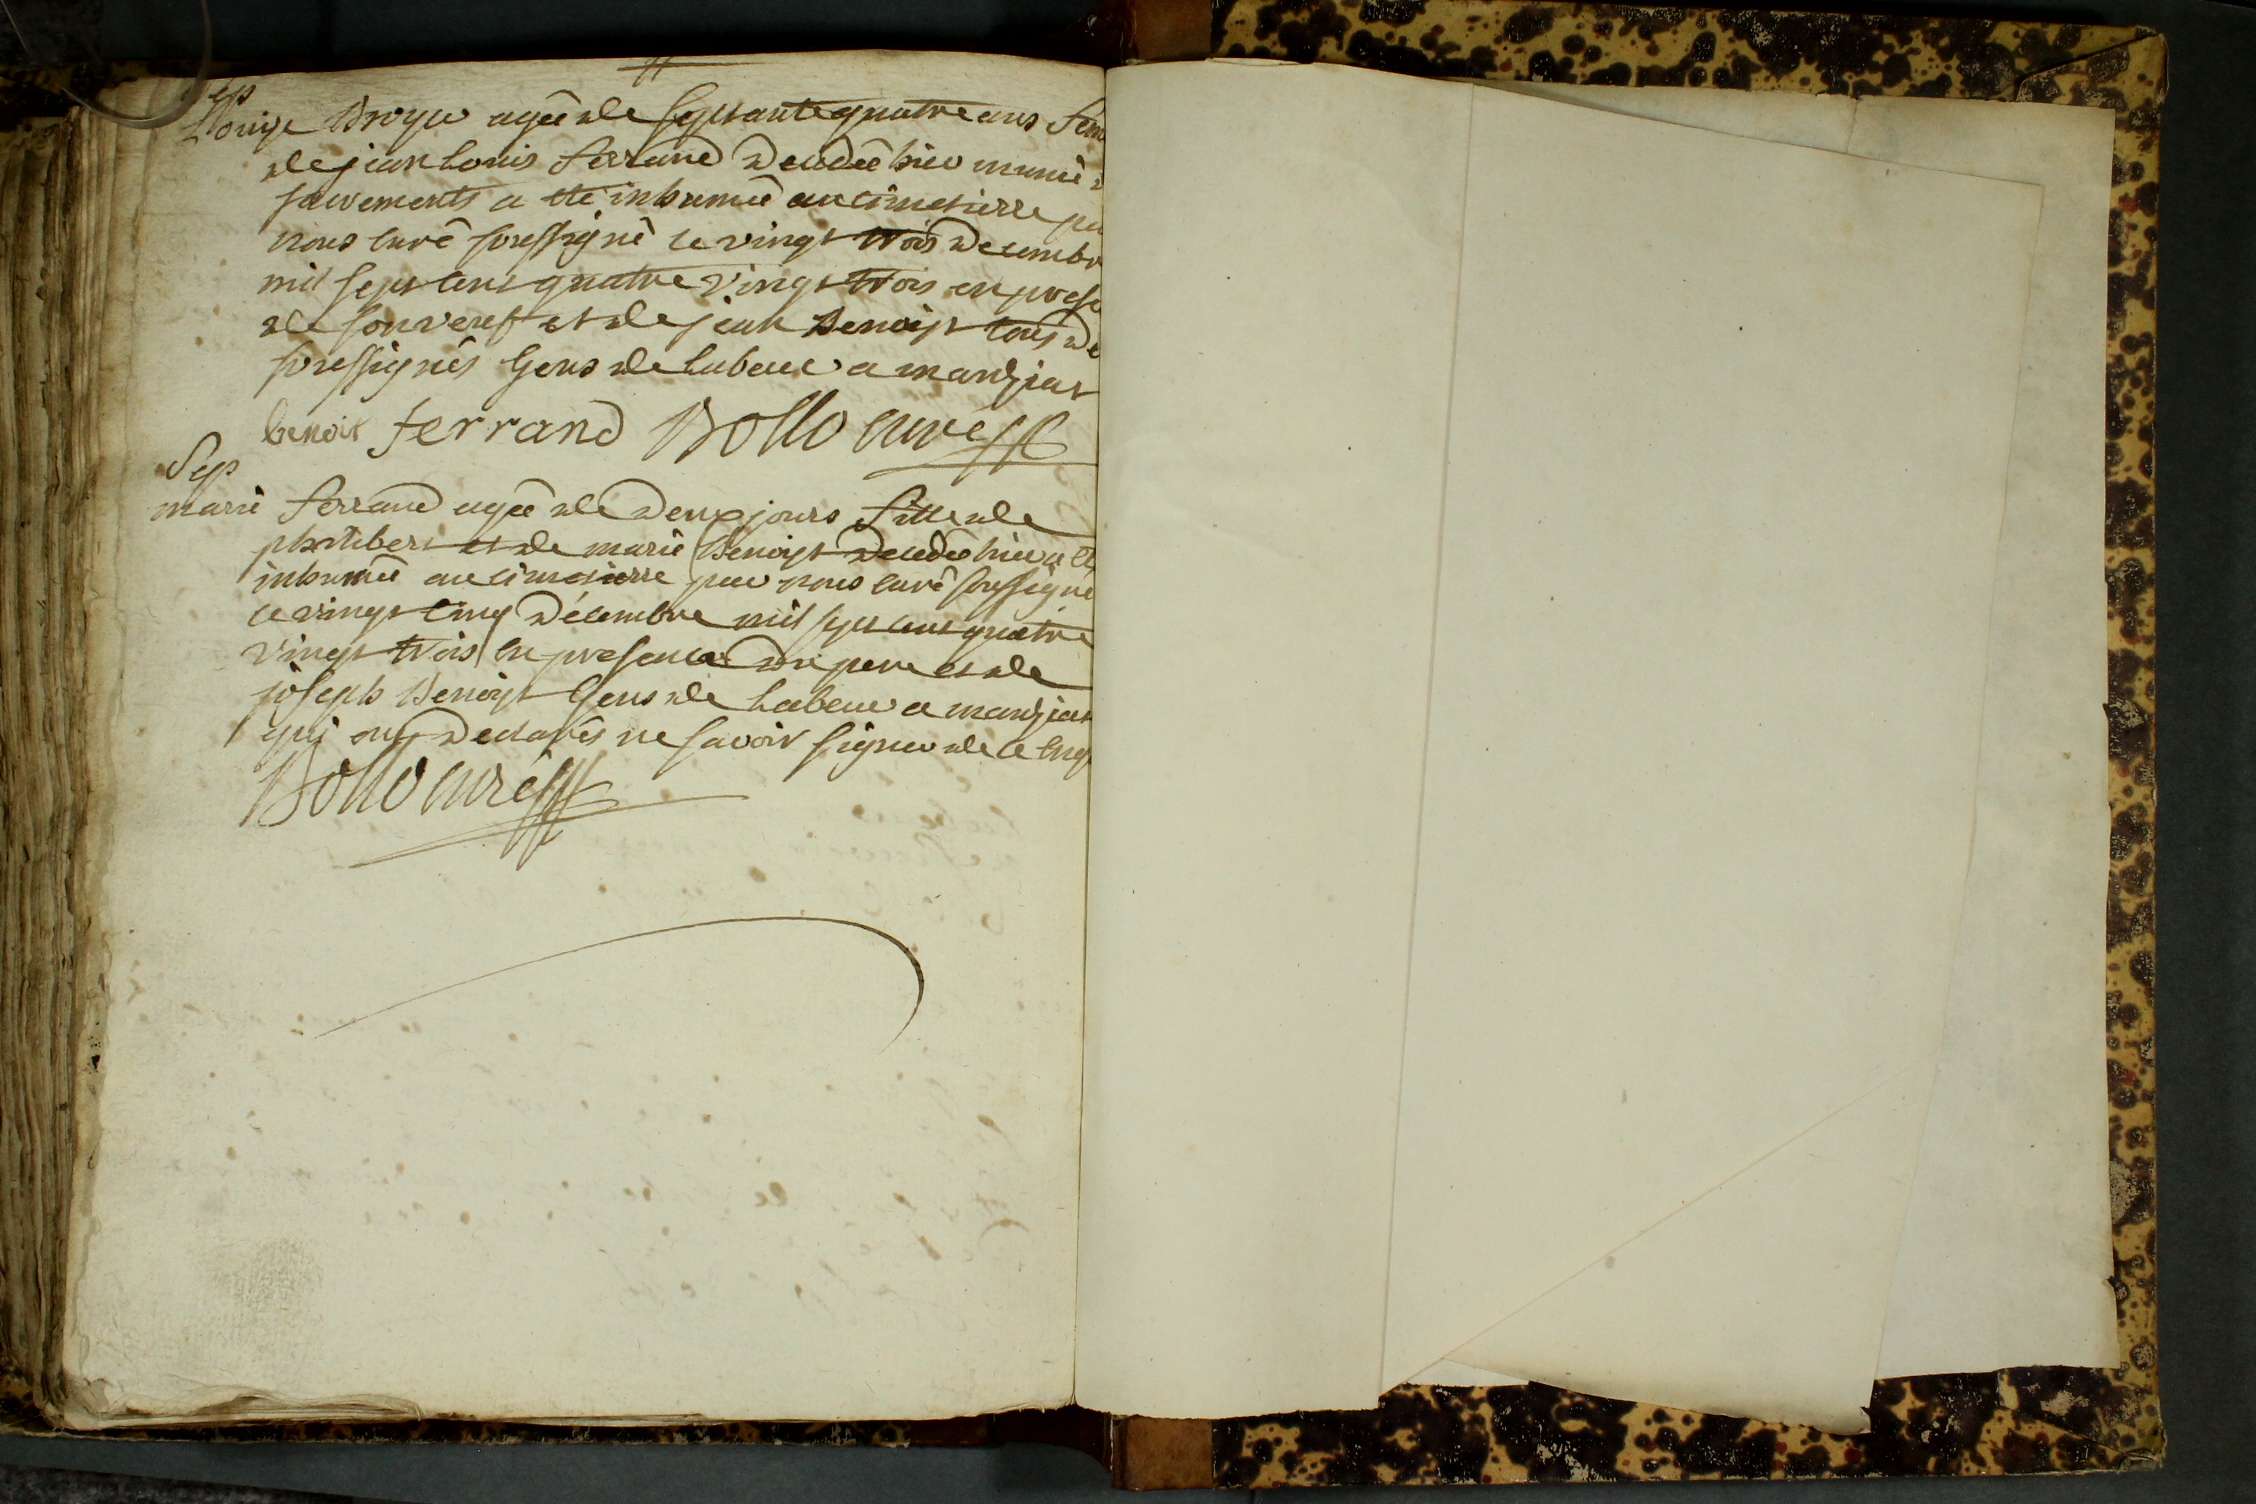 Sep
Louise Broyer agée de septante quatre ans fem
de jean Louis ferrand decedée hier munie d
sacrements a eté inhumée au cimetierre par
nous curé soussigné le vingt trois Decembr
mil sept cent quatre vingt trois en prese
de son veuf et de jean Benoist tous de
soussignés Gens de Labeur a manziat
benoit ferrand Bollo curé
Sep
marie ferrand agée de deux jours fille de
philibert et de marie Benoist decedée hier a eté
inhumée au cimetierre par nous curé soussigné
le vingt cinq décembre mil sept cent quatre
vingt trois en presence du pere et de
joseph Benoist Gens de Labeur a manziat
qui ont declarés ne savoir signer de ce enq
Bollo curé